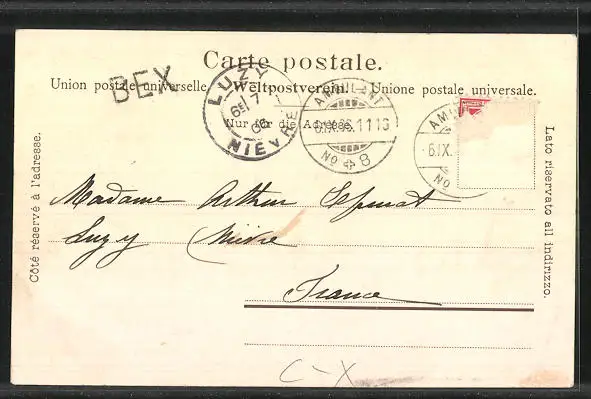 Carte postale.
Union postale universelle. Weltpostverein. Unione postale universale.
Nur für die Adresse.
BEX
LUZY
6E 7
06
NIEVRE
AMBULANT
6.IX.06.11
No 8
AM
6.IX.
No
Côté réservé à l'adresse.
Lato riservato all indirizzo.
Madame Arthur
Luzy Nièvre
France
C-X